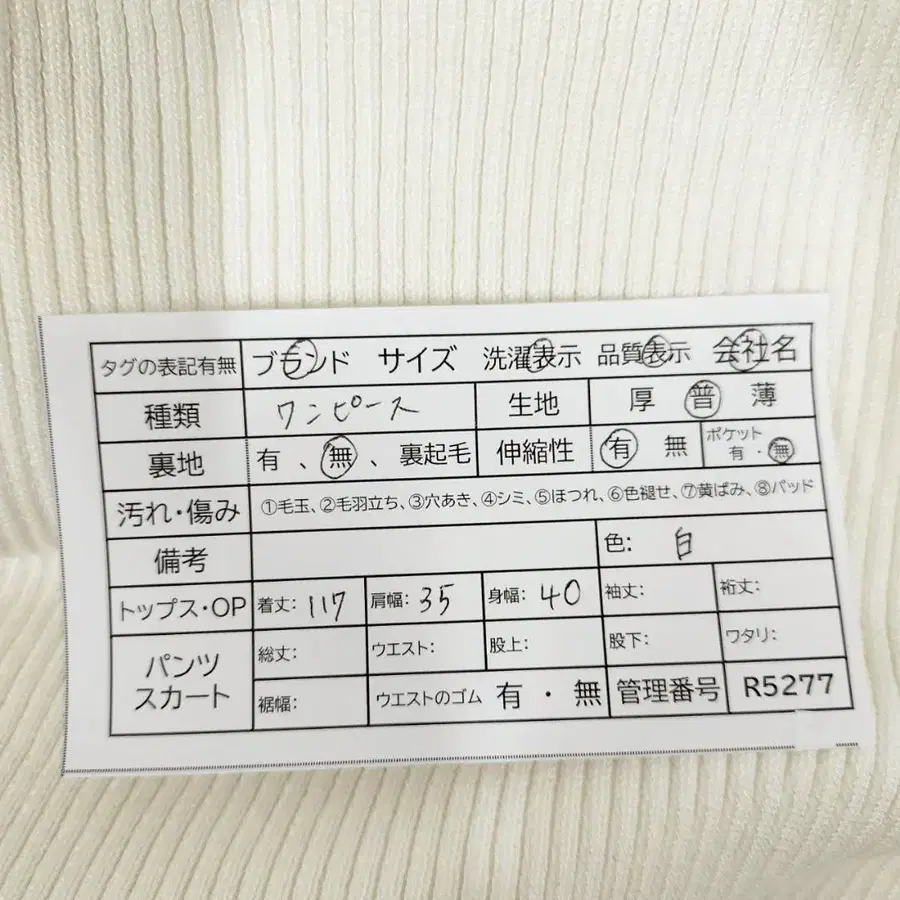 タグの表記有無 ブランド サイズ 洗濯表示 品質表示 会社名
種類 ワンピース 生地 厚 普 薄
裏地 有 、 無 、 裏起毛 伸縮性 有 無 ポケット 有 ・ 無
汚れ・傷み ①毛玉、②毛羽立ち、③穴あき、④シミ、⑤ほつれ、⑥色褪せ、⑦黄ばみ、⑧パッド
備考 色: 白
トップス・OP 着丈: 117 肩幅: 35 身幅: 40 袖丈: 裄丈:
パンツ スカート 総丈: ウエスト: 股上: 股下: ワタリ:
裾幅: ウエストのゴム 有 ・ 無 管理番号 R5277